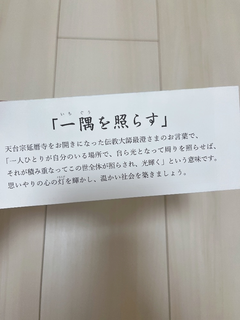 いち ぐう
「一隅を照らす」
天台宗延暦寺をお開きになった伝教大師最澄さまのお言葉で、
「一人ひとりが自分のいる場所で、自ら光となって周りを照らせば、
それが積み重なってこの世全体が照らされ、光輝く」という意味です。
思いやりの心の灯を輝かし、温かい社会を築きましょう。